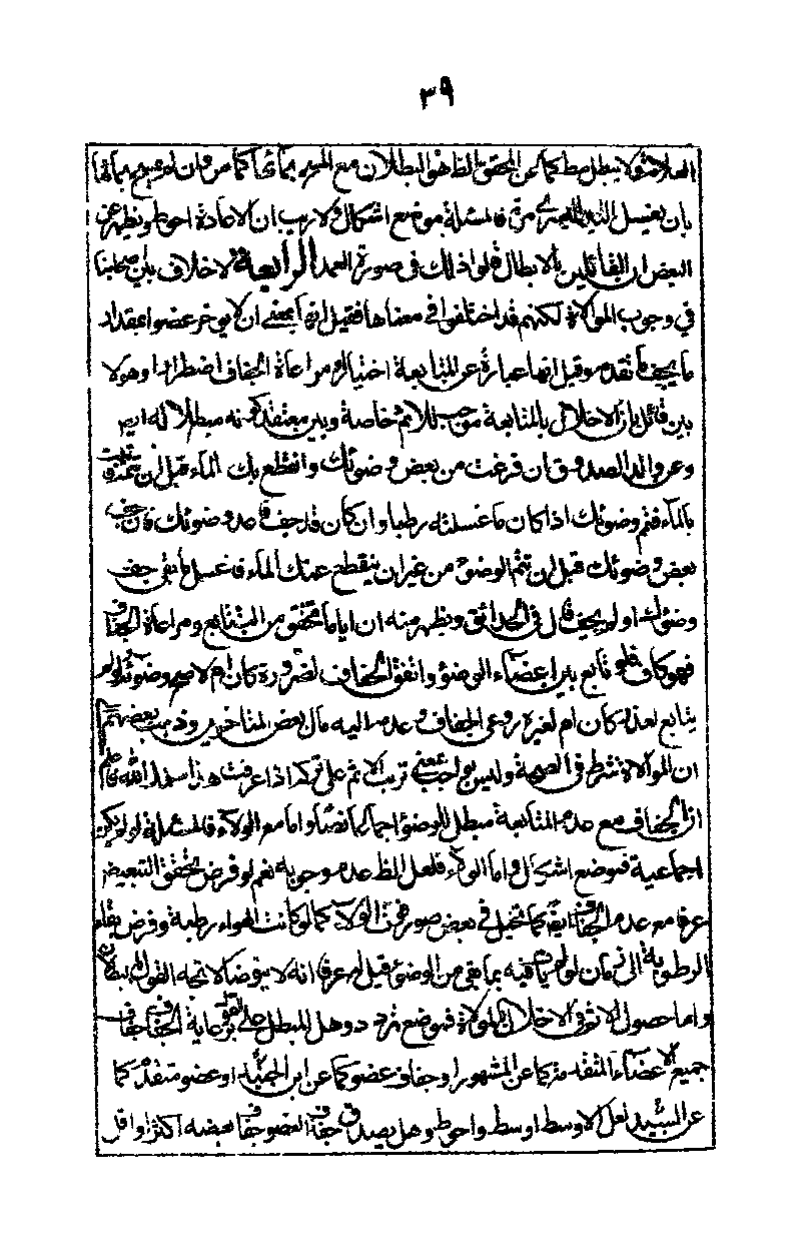 ٣٩
العلامة ولا يبطل مطلقا كما عن المحقق الظاهر البطلان مع المسح بمائها كما مر وان لم يمسح بمائها
بان يغسل اليد اليسرى مرة فالمسئلة موضع اشكال ولا ريب ان الاعادة احوط ويظهر عن
البعض ان القائلين بالابطال قالوا ذلك في صورة العمد الرابعة لا خلاف بين اصحابنا
في وجوب الموالاة لكنهم قد اختلفوا في معناها فقيل انها بمعنى ان لا يؤخر عضوا بمقدار
ما يجف ما تقدم وقيل انها عبارة عن المتابعة اختيارا ومراعاة الجفاف اضطرارا وهؤلاء
بين قائل بان الاخلال بالمتابعة موجب للاثم خاصة وبين معتقد كونه مبطلا له ايضا
وعن والد الصدوق ان فرغت من بعض وضوئك وانقطع بك الماء قبل ان تتمه فاتيت
بالماء فتم وضوئك اذا كان ما غسلته رطبا وان كان قد جف فاعد وضوئك فان جف
بعض وضوئك قبل ان تتم الوضوء من غير ان ينقطع عنك الماء فاغسل ما بقي جف
وضوئك او لم يجف قال في الحدائق ويظهر منه ان ايا ما تحقق من التتابع ومراعاة الجفاف
فهو كاف فلو تابع بين اعضاء الوضوء واتفق الجفاف لضرورة كان ام لا صح وضوئه ولو لم
يتابع لعذر كان ام لغيره روعي الجفاف وعدمه اليه مال بعض المتاخرين وذهب بعضهم الى
ان الموالاة شرط في الصحة وليس بواجب بمعنى ترتب الاثم على تركه اذا عرفت هذا سهل الله فاعلم
ان الجفاف مع عدم المتابعة مبطل للوضوء اجماعا نصا واما مع الولاء فالمسئلة لو لم يكن
اجماعية فموضع اشكال واما الولاء فلعل الظ عدم وجوبه نعم لو فرض تحقق التبعيض
عرفا مع عدم الجفاف ايضا كما تخيل في بعض صور فوت الولاء كما لو كانت الهواء رطبة وفرض بقاء
الرطوبة الى زمان لو لم يات فيه بما بقي من الوضوء قيل له عرفا انه لا يتوضا لاتجه القول بالبطلان
واما حصول الاثم في الاخلال بالموالاة فموضع تردد وهل المبطل على القول برعاية الجفاف جفاف
جميع الاعضاء المتقدمة كما عن المشهور او جفاف عضو كما عن ابن الجنيد او عضو متقدم كما
عن السيد لعل الاوسط اوسط واحوط وهل يصدق جفاف العضو جفاف بعضه اكثر او اقل